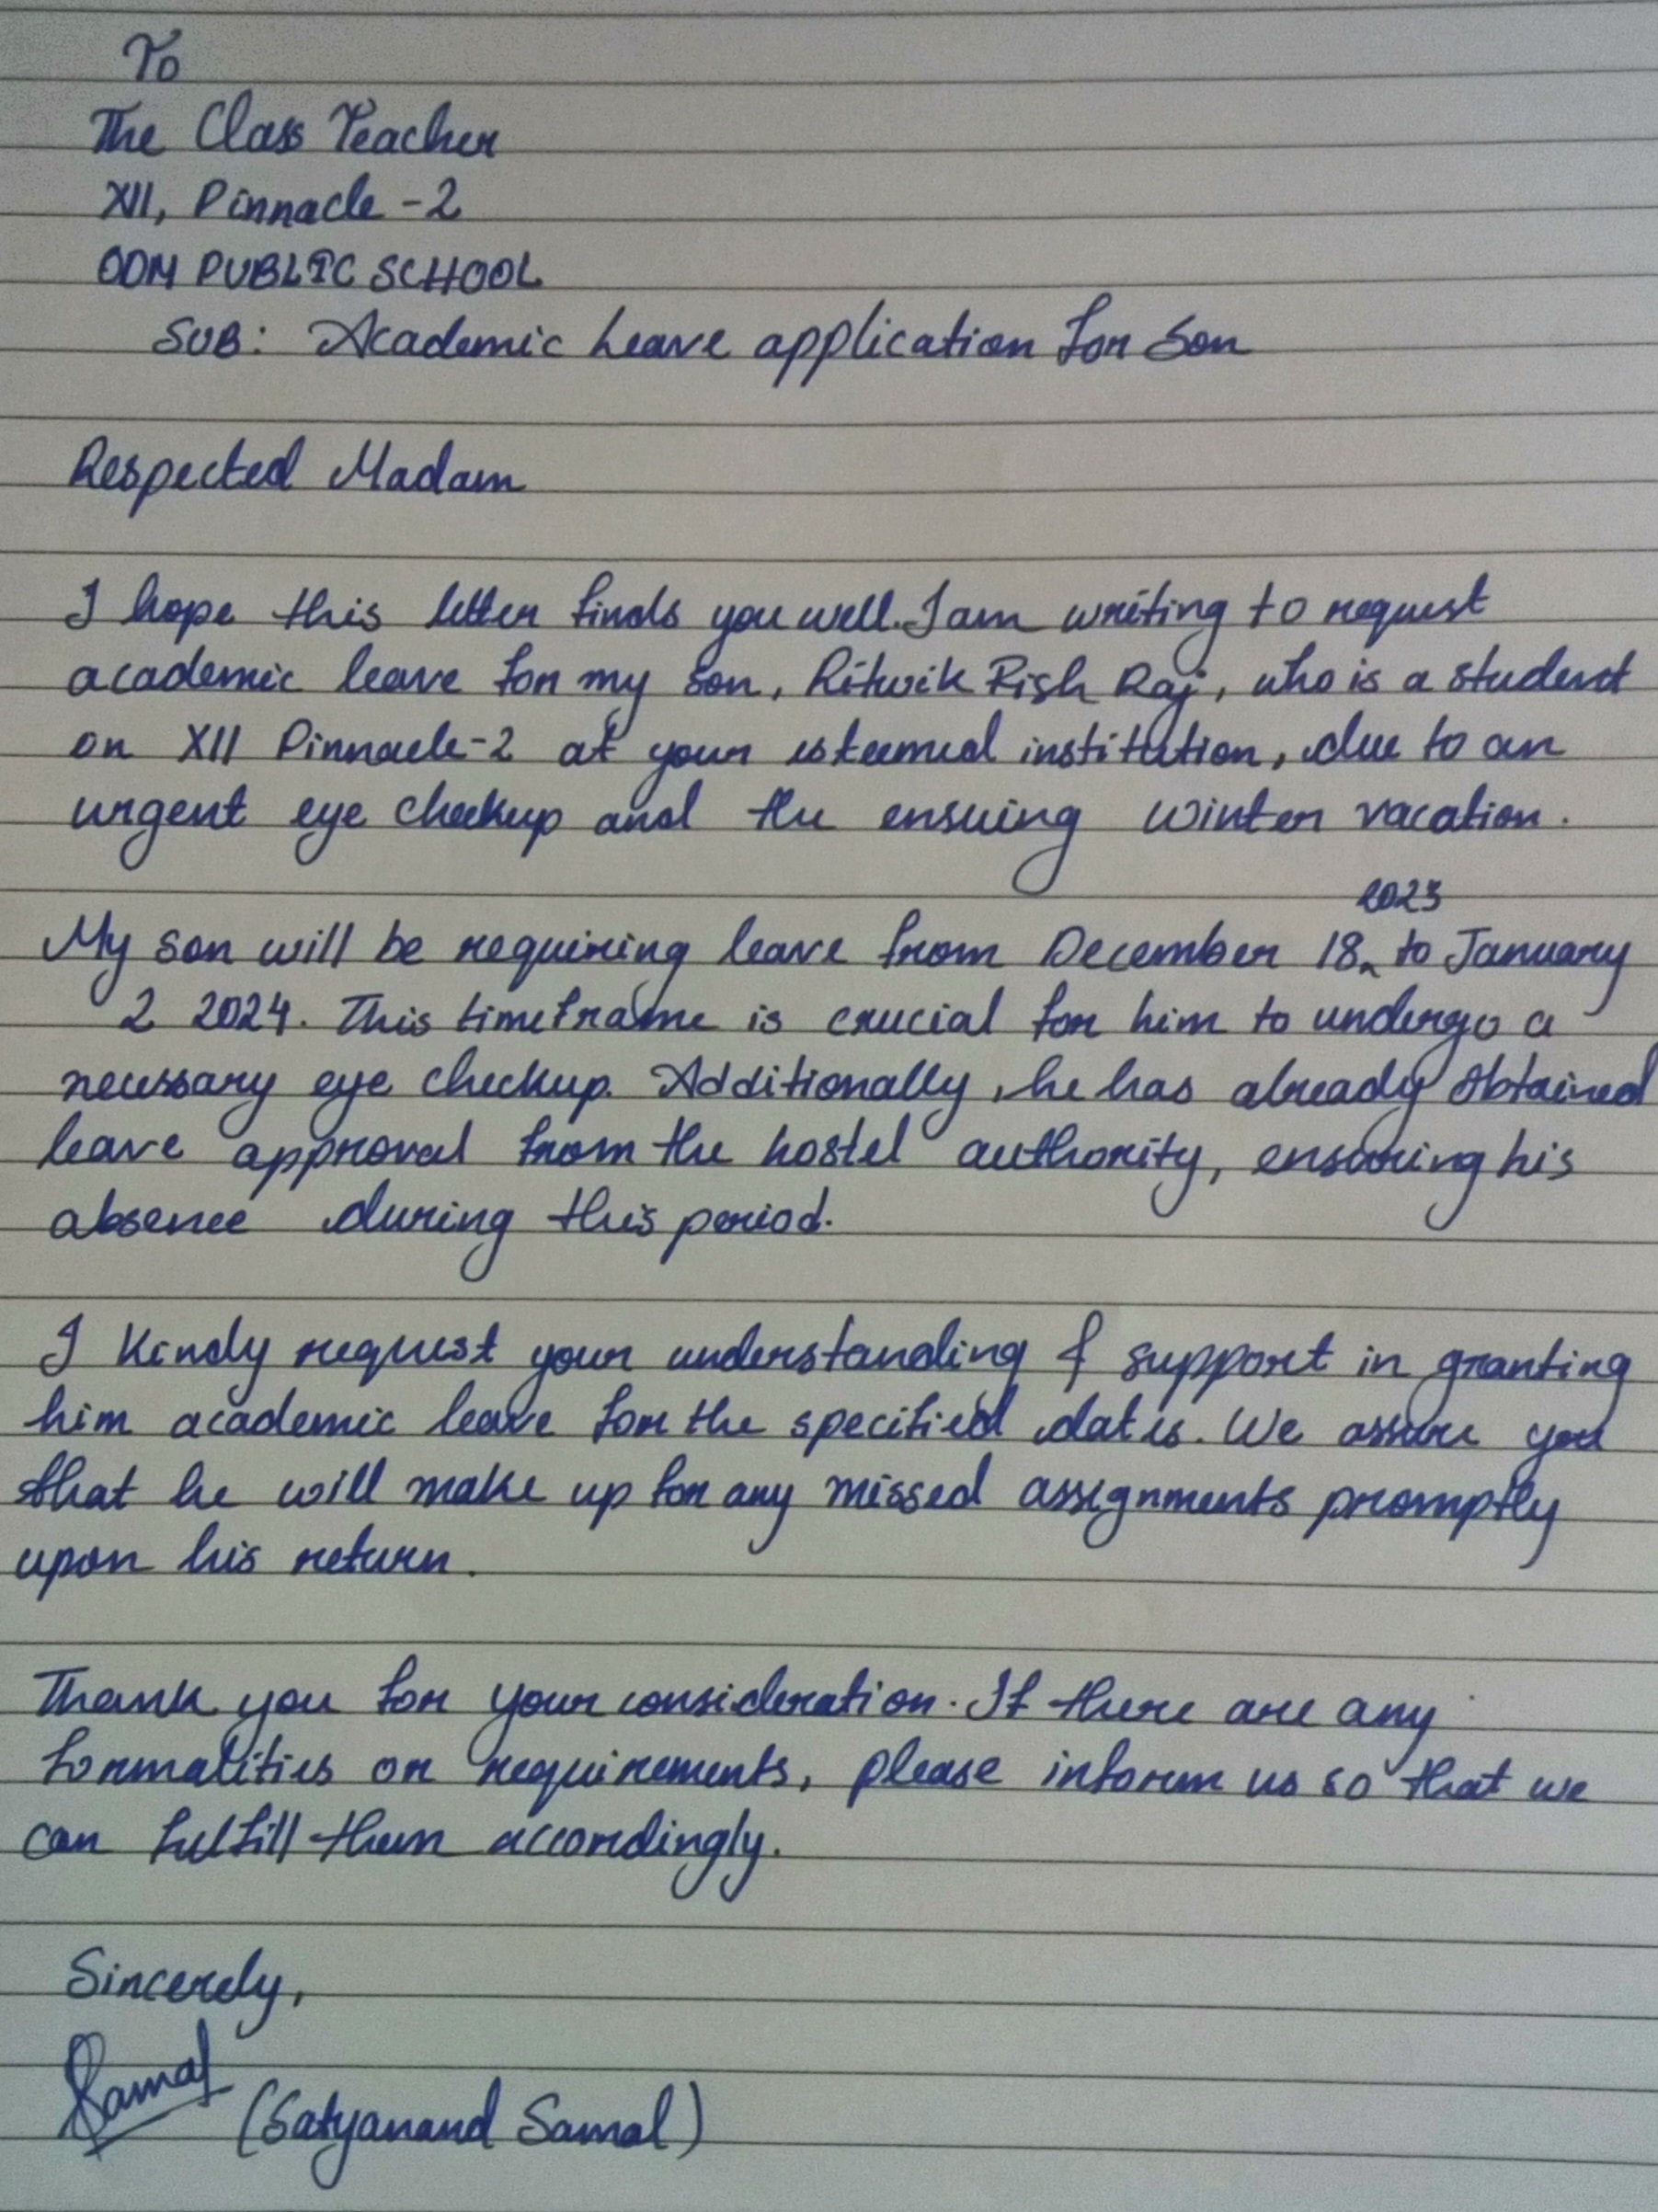 To
The Class Teacher
XII, Pinnacle -2
ODM PUBLIC SCHOOL
SUB: Academic Leave application for Son
Respected Madam
I hope this letter finds you well. I am writing to request
academic leave for my son, Ritwik Rish Raj, who is a student
on XII Pinnacle-2 at your esteemed institution, due to an
urgent eye checkup and the ensuing winter vacation.
2023
My son will be requiring leave from December 18^ to January
2 2024. This timeframe is crucial for him to undergo a
necessary eye checkup. Additionally, he has already obtained
leave approval from the hostel authority, ensuring his
absence during this period.
I Kindly request your understanding & support in granting
him academic leave for the specified dates. We assure you
that he will make up for any missed assignments promptly
upon his return.
Thank you for your consideration. If there are any
formalities or requirements, please inform us so that we
can fulfill them accordingly.
Sincerely,
Samal (Satyanand Samal)